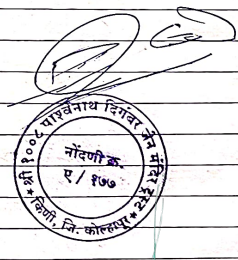 श्री १००८ पार्श्वनाथ दिगंबर जैन मंदिर ट्रस्ट
नोंदणी क्र.
ए / १७७
किणी, जि. कोल्हापूर